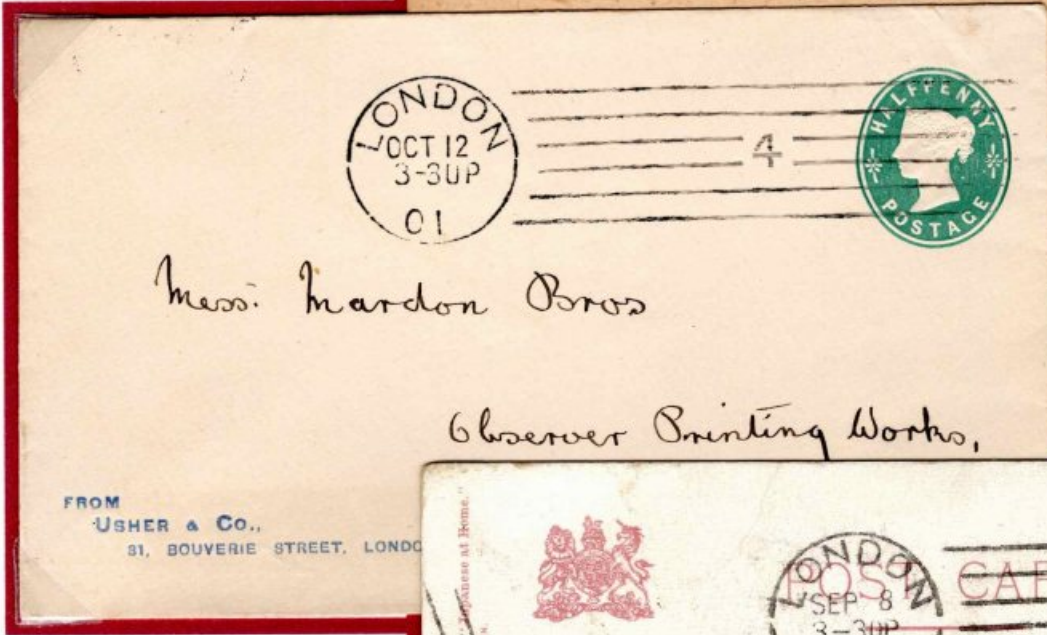 LONDON
OCT 12
3-30P
01
4
HALFPENNY
POSTAGE
Mess. Mardon Bros
Observer Printing Works,
FROM
USHER & CO.,
31, BOUVERIE STREET, LONDO
Japanese at Home."
POST CAR
LONDON
SEP 8
3-30P